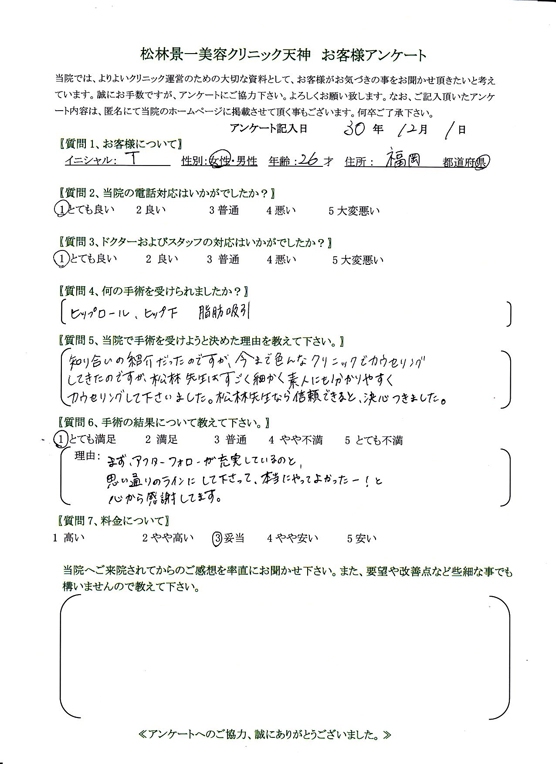 松林景一美容クリニック天神 お客様アンケート
当院では、よりよいクリニック運営のための大切な資料として、お客様がお気づきの事をお聞かせ頂きたいと考え
ています。誠にお手数ですが、アンケートにご協力下さい。よろしくお願い致します。なお、ご記入頂いたアンケ
ート内容は、匿名にて当院のホームページに掲載させて頂く事もございます。何卒ご了承下さい。
アンケート記入日 30 年 12 月 1 日
〖質問1、お客様について〗
イニシャル: T 性別:女性・男性 年齢:26 才 住所: 福岡 都道府県
〖質問2、当院の電話対応はいかがでしたか?〗
1とても良い 2 良い 3 普通 4 悪い 5 大変悪い
〖質問3、ドクターおよびスタッフの対応はいかがでしたか?〗
1とても良い 2 良い 3 普通 4 悪い 5 大変悪い
〖質問4、何の手術を受けられましたか?〗
ヒップロール、ヒップ下 脂肪吸引
〖質問5、当院で手術を受けようと決めた理由を教えて下さい。〗
知り合いの紹介だったのですが、今まで色んなクリニックでカウセリング
してきたのですが、松林先生はすごく細かく素人にも分かりやすく
カウセリングして下さいました。松林先生なら信頼できると、決心つきました。
〖質問6、手術の結果について教えて下さい。〗
1とても満足 2 満足 3 普通 4 やや不満 5 とても不満
理由: まず、アフターフォローが充実しているのと、
思い通りのラインにして下さって、本当にやってよかったー!と
心から感謝してます。
〖質問7、料金について〗
1 高い 2 やや高い 3妥当 4 やや安い 5 安い
当院へご来院されてからのご感想を率直にお聞かせ下さい。また、要望や改善点など些細な事でも
構いませんので教えて下さい。
≪アンケートへのご協力、誠にありがとうございました。≫